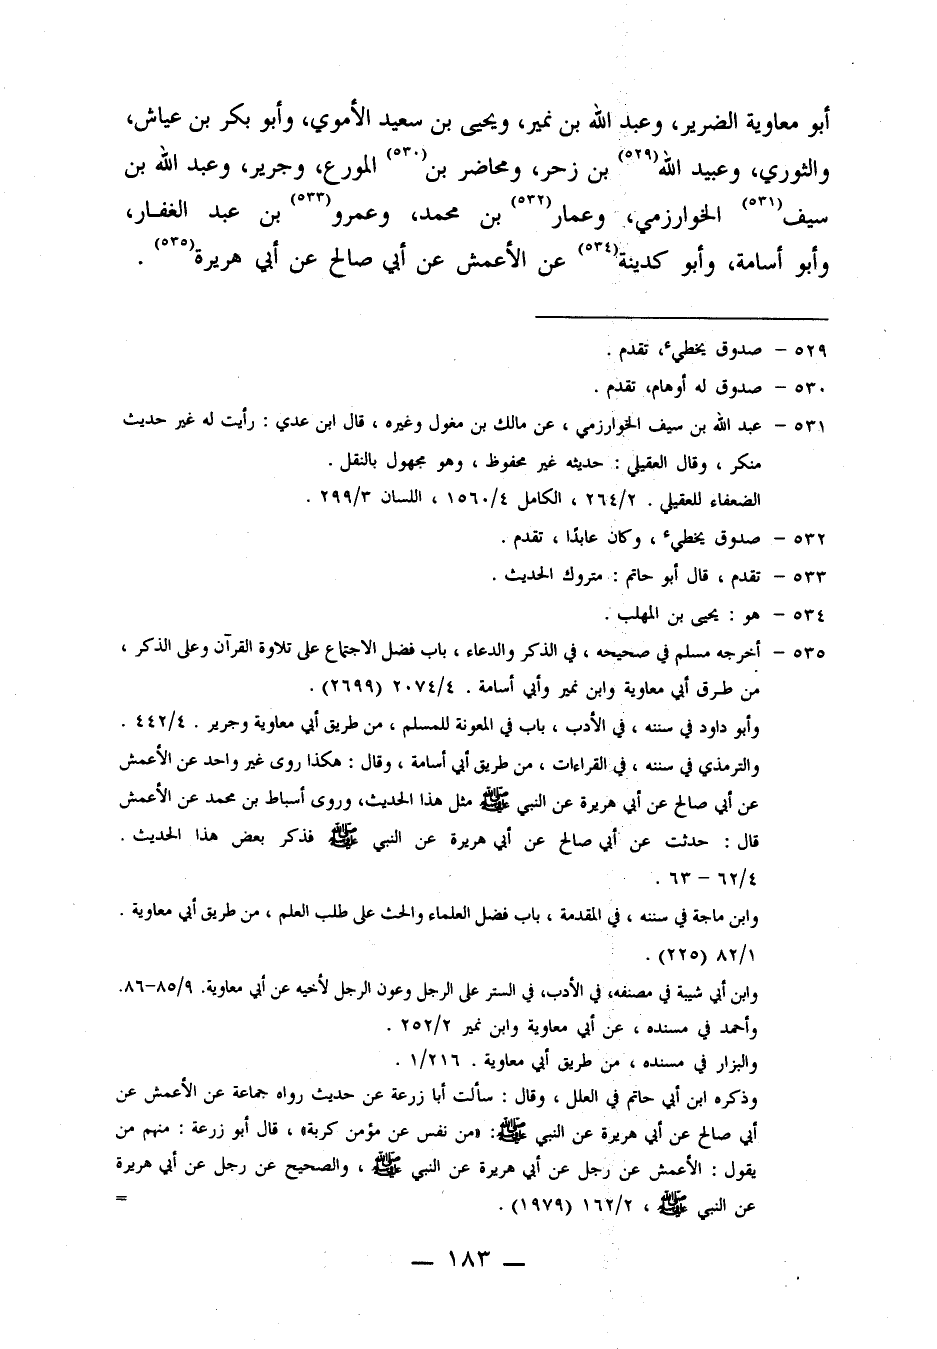 أبو معاوية الضرير، وعبد الله بن نمير، ويحيى بن سعيد الأموي، وأبو بكر بن عياش،
والثوري، وعبيد الله(٥٢٩) بن زحر، ومحاضر بن(٥٣٠) المورع، وجرير، وعبد الله بن
سيف(٥٣١) الخوارزمي، وعمار(٥٣٢) بن محمد، وعمرو(٥٣٣) بن عبد الغفار،
وأبو أسامة، وأبو كدينة(٥٣٤) عن الأعمش عن أبي صالح عن أبي هريرة(٥٣٥) .
٥٢٩ – صدوق يخطيء، تقدم .
٥٣٠ – صدوق له أوهام، تقدم .
٥٣١ – عبد الله بن سيف الخوارزمي ، عن مالك بن مغول وغيره ، قال ابن عدي : رأيت له غير حديث
منكر ، وقال العقيلي : حديثه غير محفوظ ، وهو مجهول بالنقل .
الضعفاء للعقيلي . ٢٦٤/٢ ، الكامل ١٥٦٠/٤ ، اللسان ٢٩٩/٣ .
٥٣٢ – صدوق يخطيء ، وكان عابدًا ، تقدم .
٥٣٣ – تقدم ، قال أبو حاتم : متروك الحديث .
٥٣٤ – هو : يحيى بن المهلب .
٥٣٥ – أخرجه مسلم في صحيحه ، في الذكر والدعاء ، باب فضل الاجتماع على تلاوة القرآن وعلى الذكر ،
من طرق أبي معاوية وابن نمير وأبي أسامة . ٢٠٧٤/٤ (٢٦٩٩) .
وأبو داود في سننه ، في الأدب ، باب في المعونة للمسلم ، من طريق أبي معاوية وجرير . ٤٤٢/٤ .
والترمذي في سننه ، في القراءات ، من طريق أبي أسامة ، وقال : هكذا روى غير واحد عن الأعمش
عن أبي صالح عن أبي هريرة عن النبي ﷺ مثل هذا الحديث، وروى أسباط بن محمد عن الأعمش
قال : حدثت عن أبي صالح عن أبي هريرة عن النبي ﷺ فذكر بعض هذا الحديث .
٦٢/٤ – ٦٣ .
وابن ماجة في سننه ، في المقدمة ، باب فضل العلماء والحث على طلب العلم ، من طريق أبي معاوية .
٨٢/١ (٢٢٥) .
وابن أبي شيبة في مصنفه، في الأدب، في الستر على الرجل وعون الرجل لأخيه عن أبي معاوية. ٨٥/٩–٨٦.
وأحمد في مسنده ، عن أبي معاوية وابن نمير ٢٥٢/٢ .
والبزار في مسنده ، من طريق أبي معاوية . ١/٢١٦ .
وذكره ابن أبي حاتم في العلل ، وقال : سألت أبا زرعة عن حديث رواه جماعة عن الأعمش عن
أبي صالح عن أبي هريرة عن النبي ﷺ: «من نفس عن مؤمن كربة» ، قال أبو زرعة : منهم من
يقول : الأعمش عن رجل عن أبي هريرة عن النبي ﷺ ، والصحيح عن رجل عن أبي هريرة
عن النبي ﷺ ، ١٦٢/٢ (١٩٧٩) . =
– ١٨٣ –